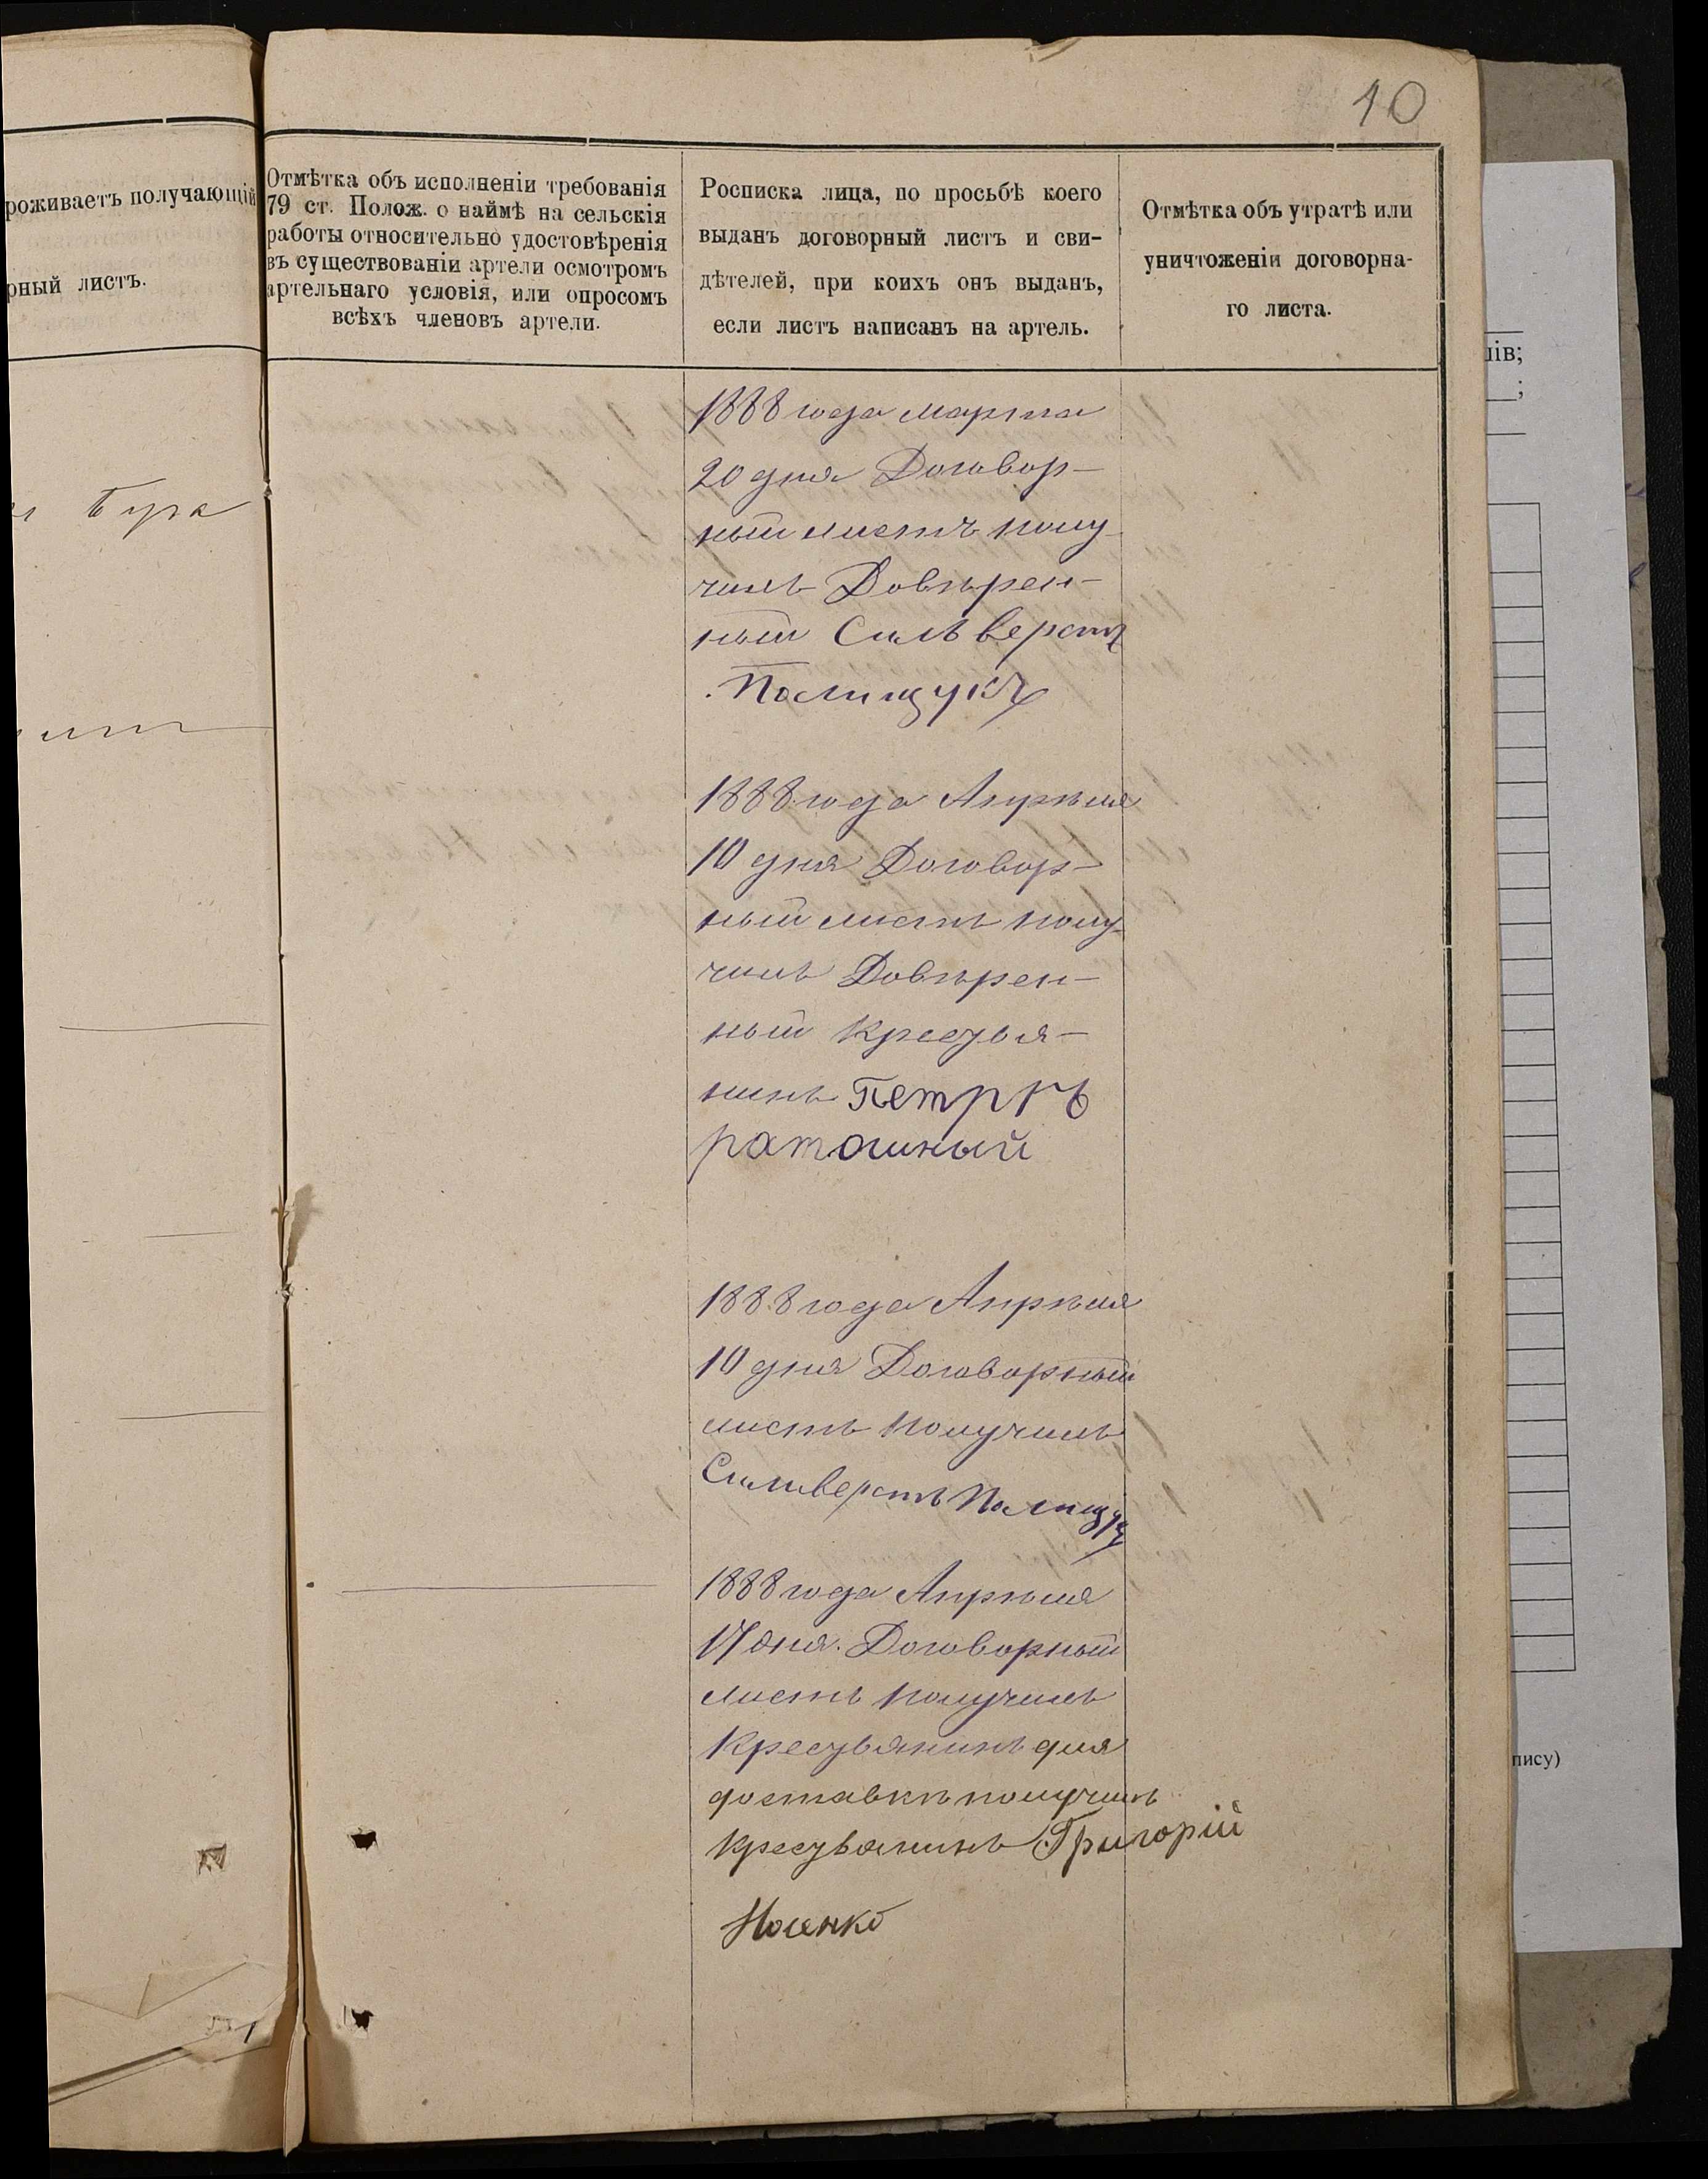 10
роживаетъ получающій
рный листъ.
Бура
Отмѣтка объ исполненіи требованія
79 ст. Полож. о наймѣ на сельскія
работы относительно удостовѣренія
въ существованіи артели осмотромъ
артельнаго условія, или опросомъ
всѣхъ членовъ артели.
Росписка лица, по просьбѣ коего
выданъ договорный листъ и сви-
дѣтелей, при коихъ онъ выданъ,
если листъ написанъ на артель.
Отмѣтка объ утратѣ или
уничтоженіи договорна-
го листа.
1888 года марта
20 дня Договор-
ный листъ полу-
чилъ Довѣрен-
ный Сильверстъ
Полищукъ
1888 года Апрѣля
10 дня Договор-
ный листъ полу-
чилъ Довѣрен-
ный Крестья-
нинъ Петръ
1888 года Апрѣля
10 дня Договорный
листъ получилъ
Силиверстъ Полищук
1888 года Апрѣля
17 дня. Договорный
листъ получилъ
Крестьянинъ для
доставкѣ получилъ
крестьянинъ Григорій
Носенко
ів;
;
пису)